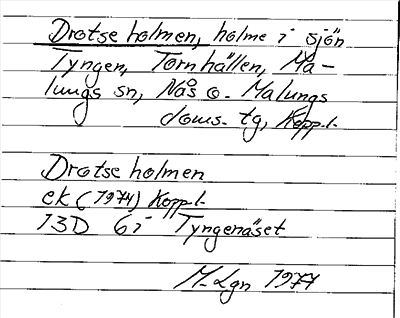 Drotseholmen, holme i sjön
Tyngen, Törnhällen, Ma-
lungs sn, Nås o. Malungs
doms. tg, Kopp. l.
Drotseholmen
ek (1974) Kopp. l.
13D 6i Tyngenäset
M-Lgn 1977